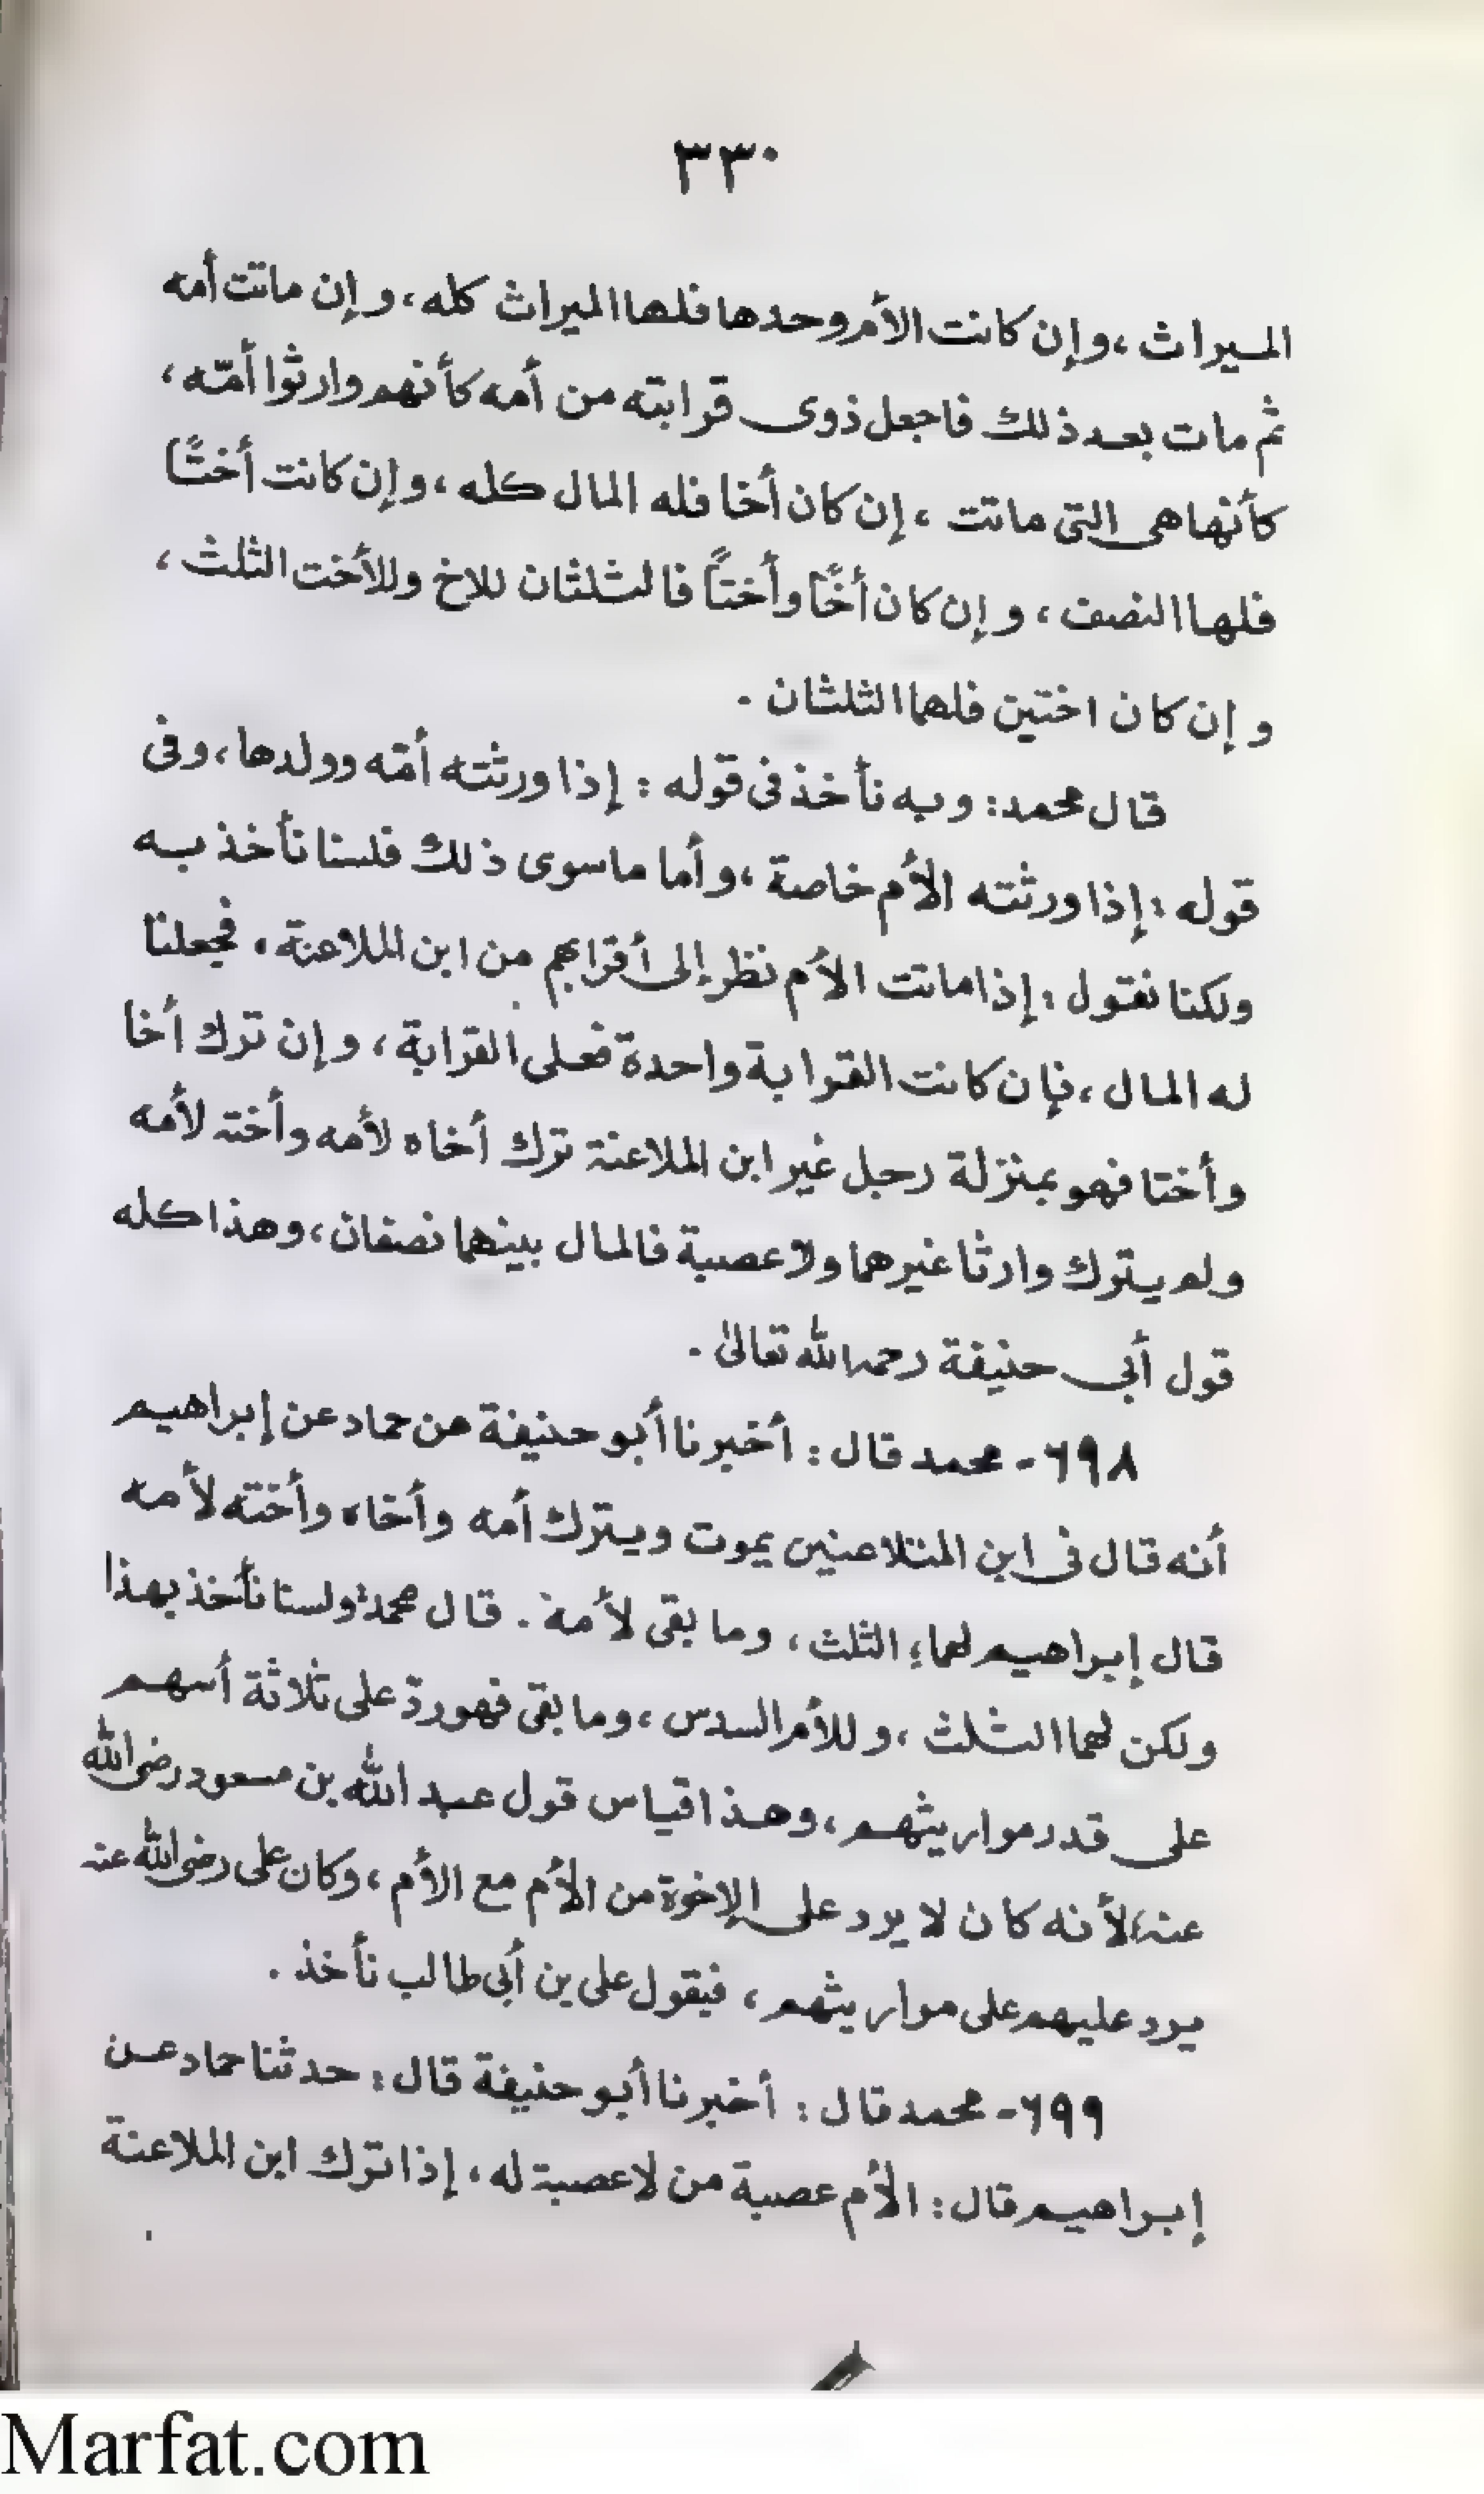 ٣٣٠
الميراث ، وإن كانت الأم وحدها فلها الميراث كله ، وإن ماتت أمه
ثم مات بعد ذلك فاجعل ذوى قرابته من أمه كأنهم وارثوا أمّه ،
كأنها هى التى ماتت ، إن كان أخا فله المال كله ، وإن كانت أختًا
فلها النصف ، وإن كان أخًا وأختاً فالثلثان للاخ وللأخت الثلث ،
وإن كان اختين فلهما الثلثان .
قال محمد : وبه نأخذ فى قوله : إذا ورثته أمّه وولدها ، وفى
قوله : إذا ورثته الأم خاصة ، وأما ما سوى ذلك فلسنا نأخذ به
ولكنا نقول : إذا ماتت الأم نظر إلى أقرابهم من ابن الملاعنة ، فجعلنا
له المال ، فإن كانت القرابة واحدة فعلى القرابة ، وإن ترك أخا
وأختا فهو بمنزلة رجل غير ابن الملاعنة ترك أخاه لأمه وأخته لأمه
ولم يترك وارثا غيرهما ولا عصبة فالمال بينهما نصفان ، وهذا كله
قول أبى حنيفة رحمه الله تعالىٰ .
٦٩٨- محمد قال : أخبرنا أبو حنيفة عن حماد عن إبراهيم
أنه قال فى ابن المتلاعنين يموت ويترك أمه وأخاه وأخته لأمه
قال إبراهيم لهما الثلث ، وما بقى لأمه . قال محمد ولسنا نأخذ بهذا
ولكن لهما الثلث ، وللأم السدس ، وما بقى فهو ردّ على ثلاثة أسهم
على قدر مواريثهم ، وهذا قياس قول عبد الله بن مسعود رضى الله
عنه، لأنه كان لا يرد على الإخوة من الأم مع الأم ، وكان على رضى الله عنه
يرد عليهم على مواريثهم ، فبقول على بن أبى طالب نأخذ .
٦٩٩- محمد قال : أخبرنا أبو حنيفة قال : حدثنا حماد عن
إبراهيم قال : الأم عصبة من لا عصبة له ، إذا ترك ابن الملاعنة
Marfat.com